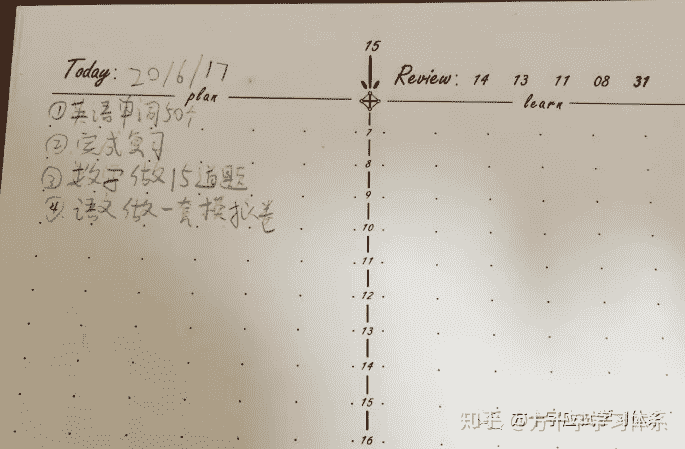 15
Today: 20/6/17
Review: 14 13 11 08 31
plan
learn
①英语单词50个
②完成复习
③数学做15道题
④语文做一套模拟卷
7
8
9
10
11
12
13
14
15
16
知乎
学习体系